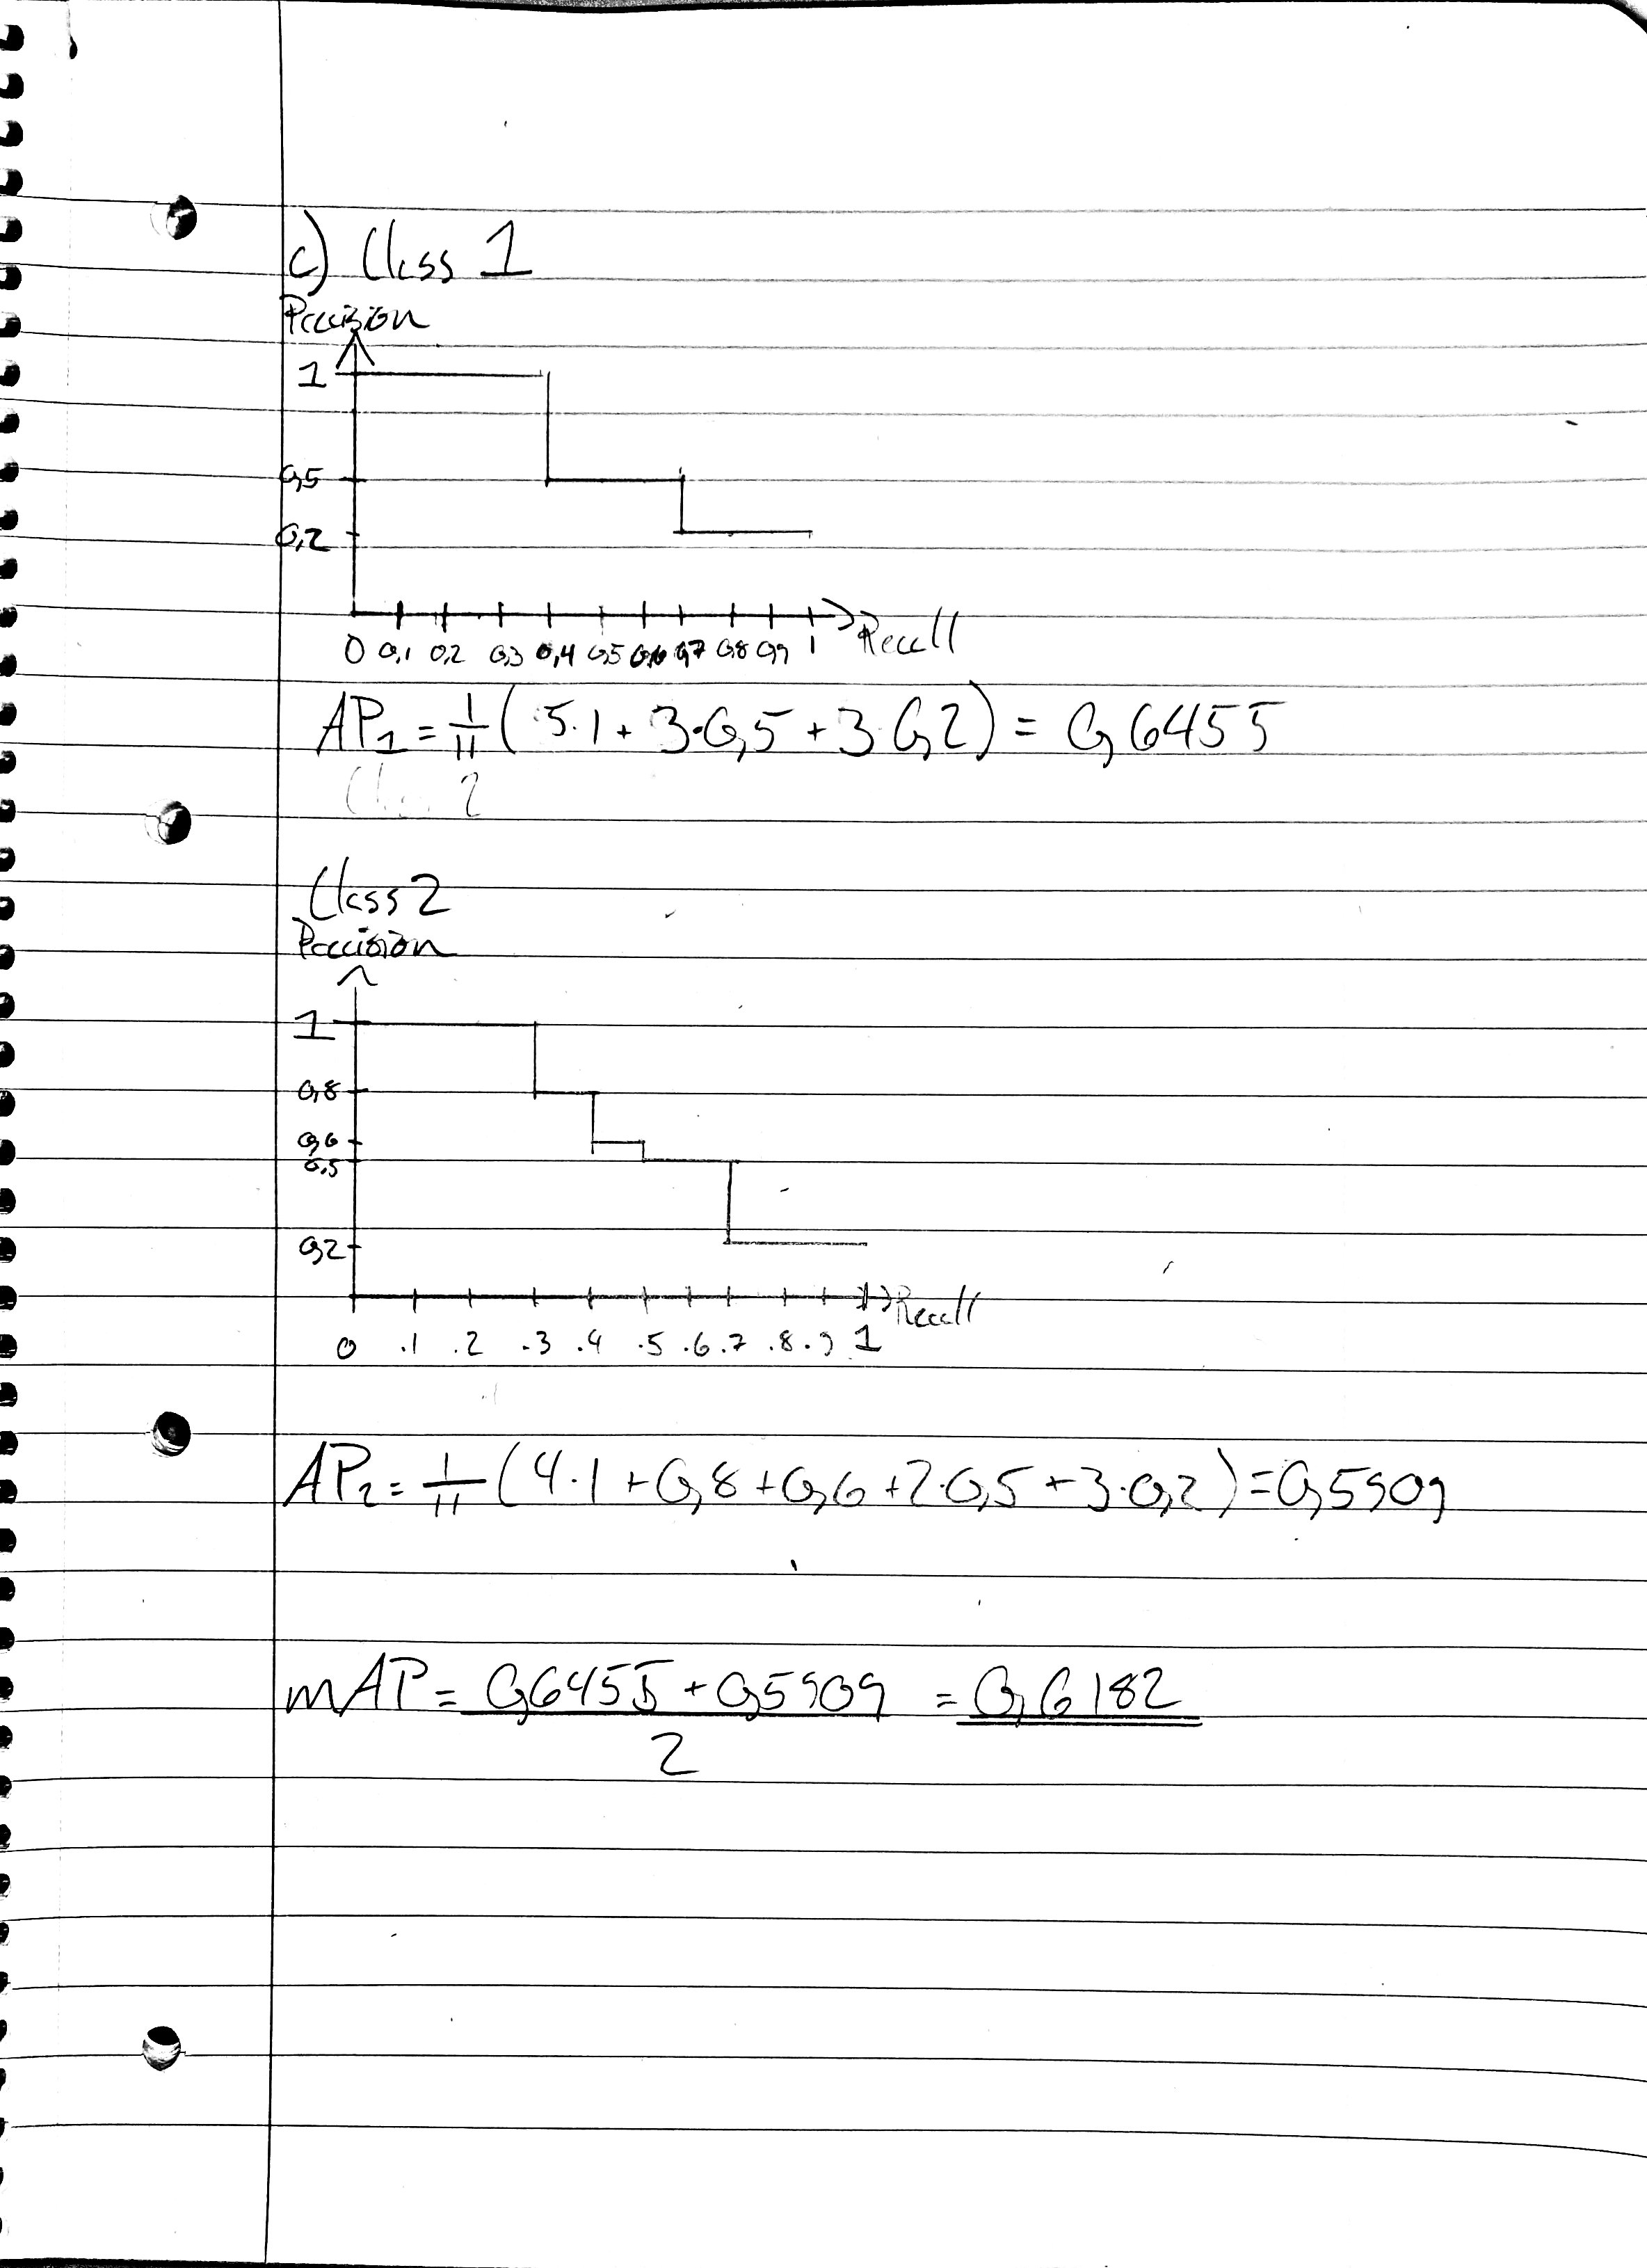 c) Class 1
Precision
1
0,5
0,2
0 0,1 0,2 0,3 0,4 0,5 0,6 0,7 0,8 0,9 1 Recall
AP₁ = 1/11 ( 5·1 + 3·0,5 + 3·0,2 ) = 0,6455
Class 2
Class 2
Precision
1
0,8
0,6
0,5
0,2
Recall
0 .1 .2 .3 .4 .5 .6 .7 .8 .9 1
AP₂ = 1/11 ( 4·1 + 0,8 + 0,6 + 2·0,5 + 3·0,2 ) = 0,5909
mAP = 0,6455 + 0,5909 = 0,6182
2